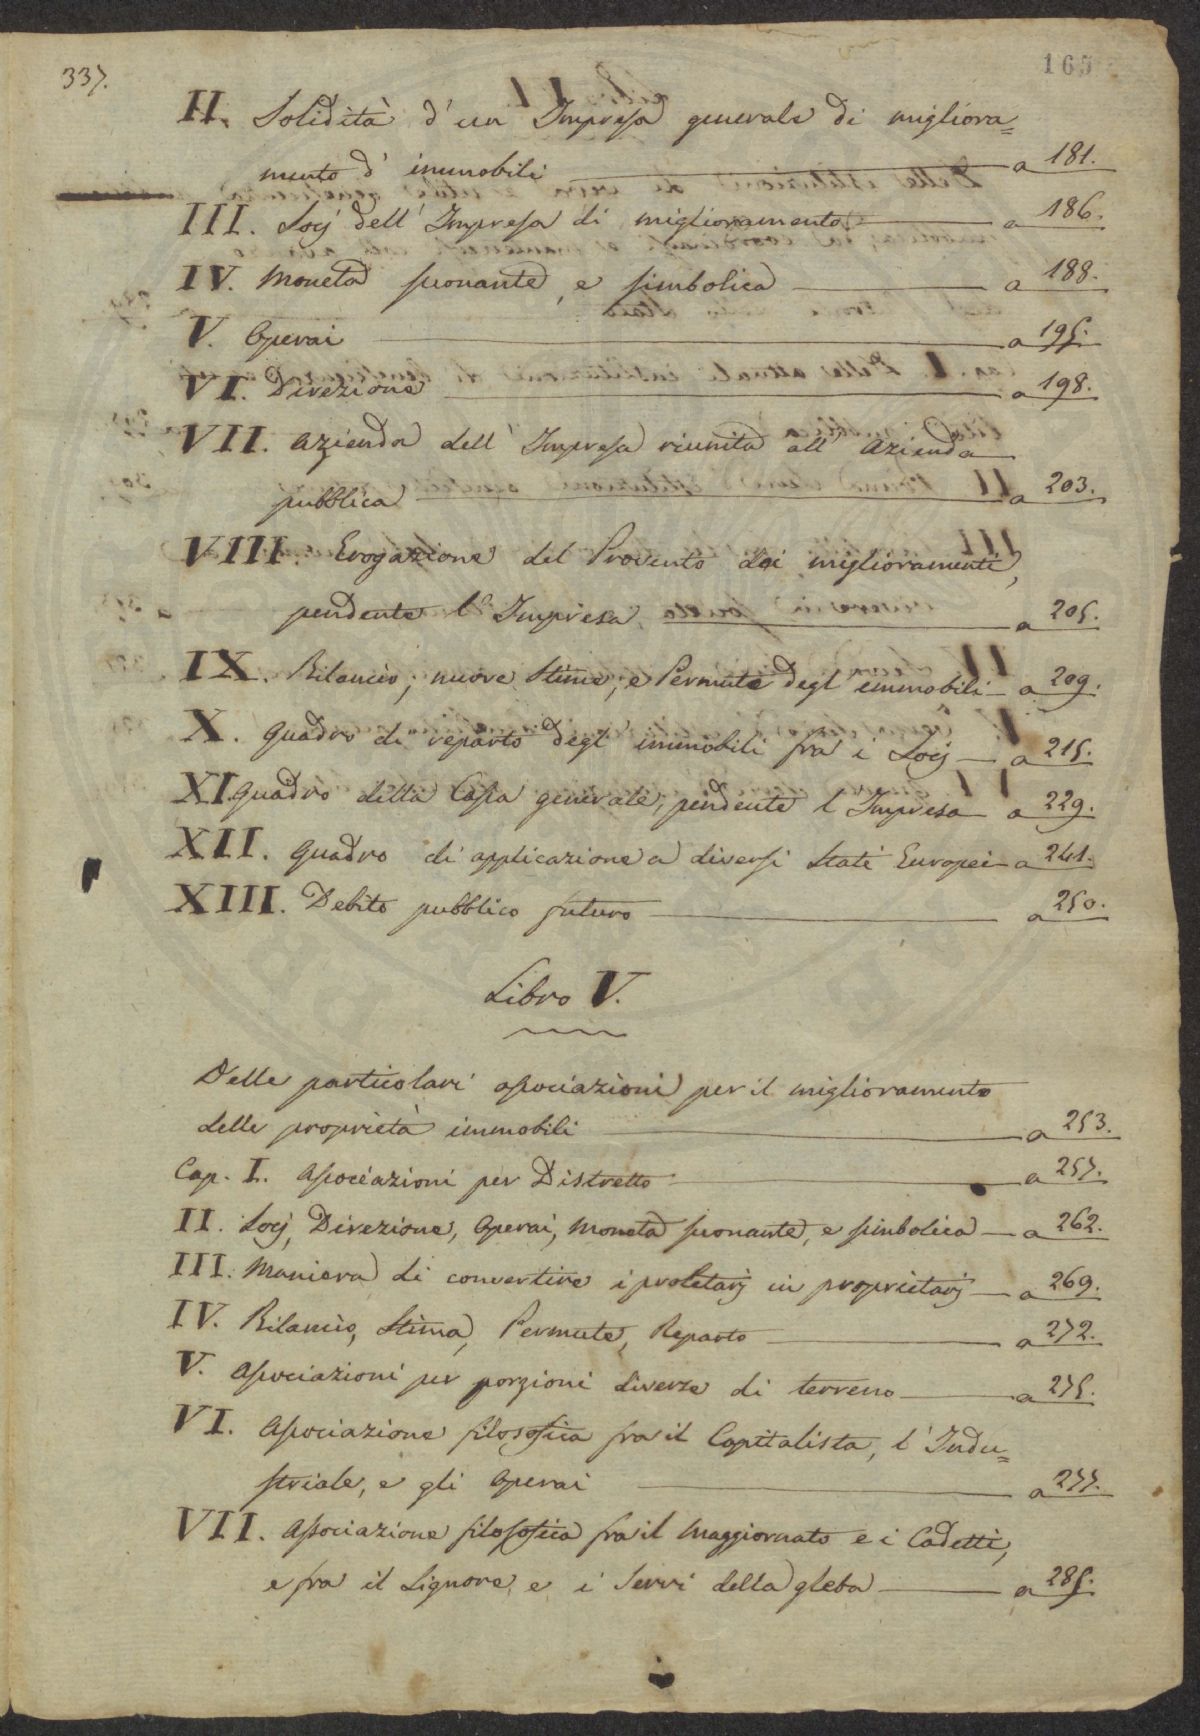 337.
165
II. Solidità d'un Impresa generale di migliora=
mento d'immobili a 181.
III. Socj dell'Impresa di miglioramento a 186.
IV. Moneta suonante, e simbolica a 188.
V. Operai a 195.
VI. Direzione a 198.
VII. Azienda dell'Impresa riunita all'Azienda
pubblica a 203.
VIII. Erogazione del Provento dei miglioramenti,
pendente l'Impresa a 205.
IX. Bilancio, nuove Stime, e Permute degl'immobili a 209.
X. Quadro di reparto degl'immobili fra i Socj a 215.
XI. Quadro della Cassa generale, pendente l'Impresa a 229.
XII. Quadro di applicazione a diversi Stati Europei a 241.
XIII. Debito pubblico futuro a 250.
Libro V.
Delle particolari associazioni per il miglioramento
delle proprietà immobili a 253.
Cap. I. Associazioni per Distretto a 257.
II. Socj, Direzione, Operai, Moneta suonante, e simbolica a 262.
III. Maniera di convertire i proletarj in proprietarj a 269.
IV. Bilancio, Stima, Permute, Reparto a 272.
V. Associazioni per porzioni diverse di terreno a 275.
VI. Associazione filosofica fra il Capitalista, l'Indu=
striale, e gli Operai a 277.
VII. Associazione filosofica fra il Maggiornato e i Cadetti,
e fra il Signore, e i Servi della gleba a 285.